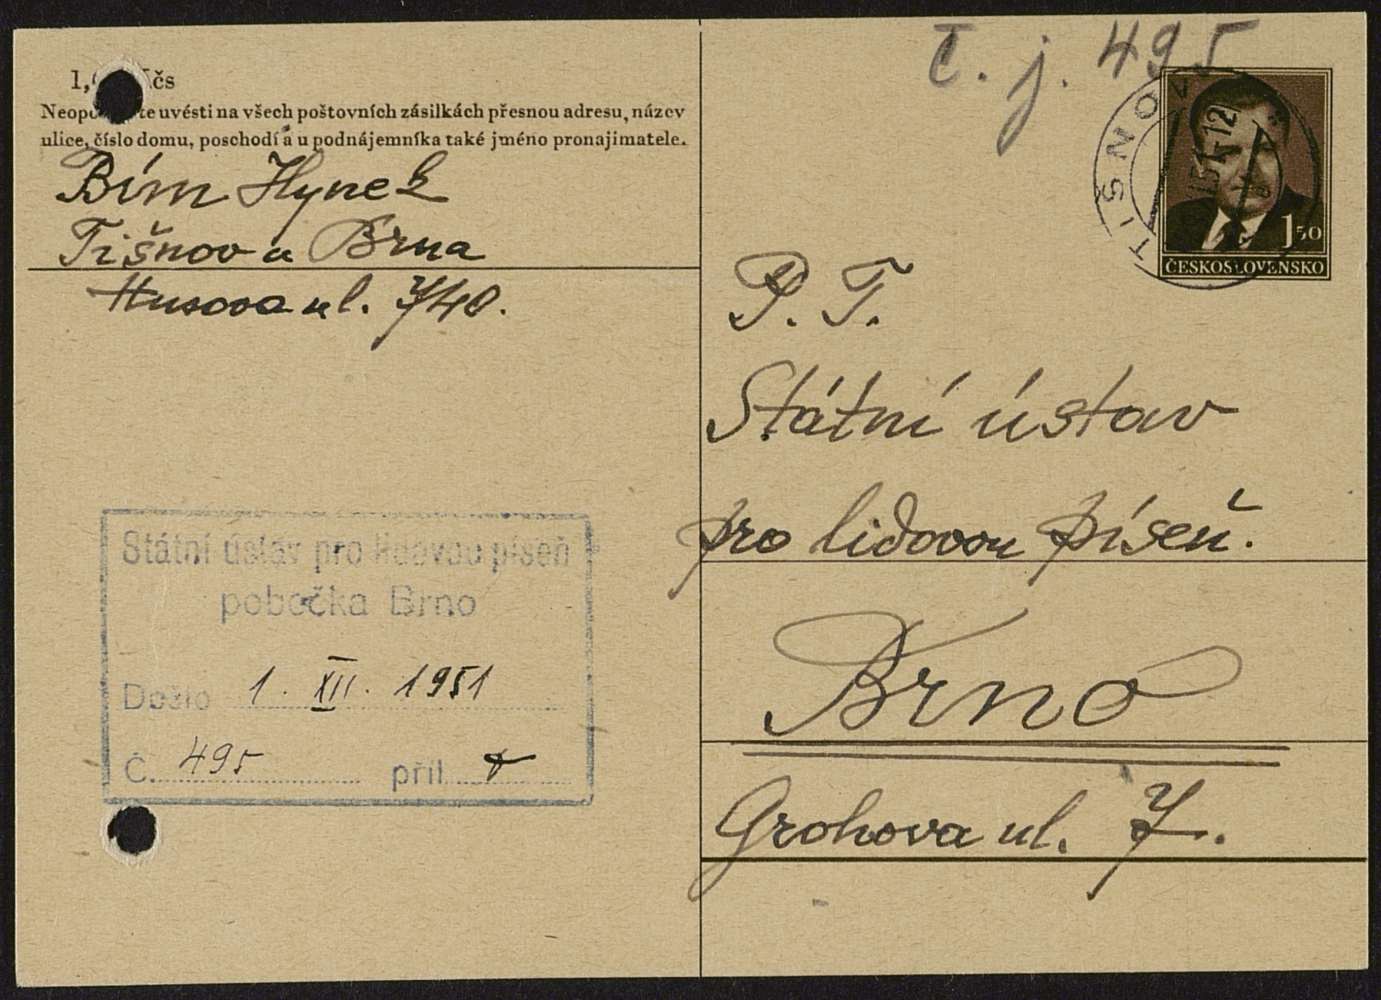 Neopo te uvésti na všech poštovních zásilkách přesnou adresu, název
ulice, číslo domu, poschodí a u podnájemníka také jméno pronajimatele.
Bím Hynek
Tišnov u Brna
Husova ul. 7/40.
Státní ústav pro lidovou píseň
pobočka Brno
Došlo 1. XII. 1951
Č. 495 příl.
Č. j. 495
TIŠNOV
1 50
ČESKOSLOVENSKO
P. T.
Státní ústav
pro lidovou píseň.
Brno
Grohova ul. 7.